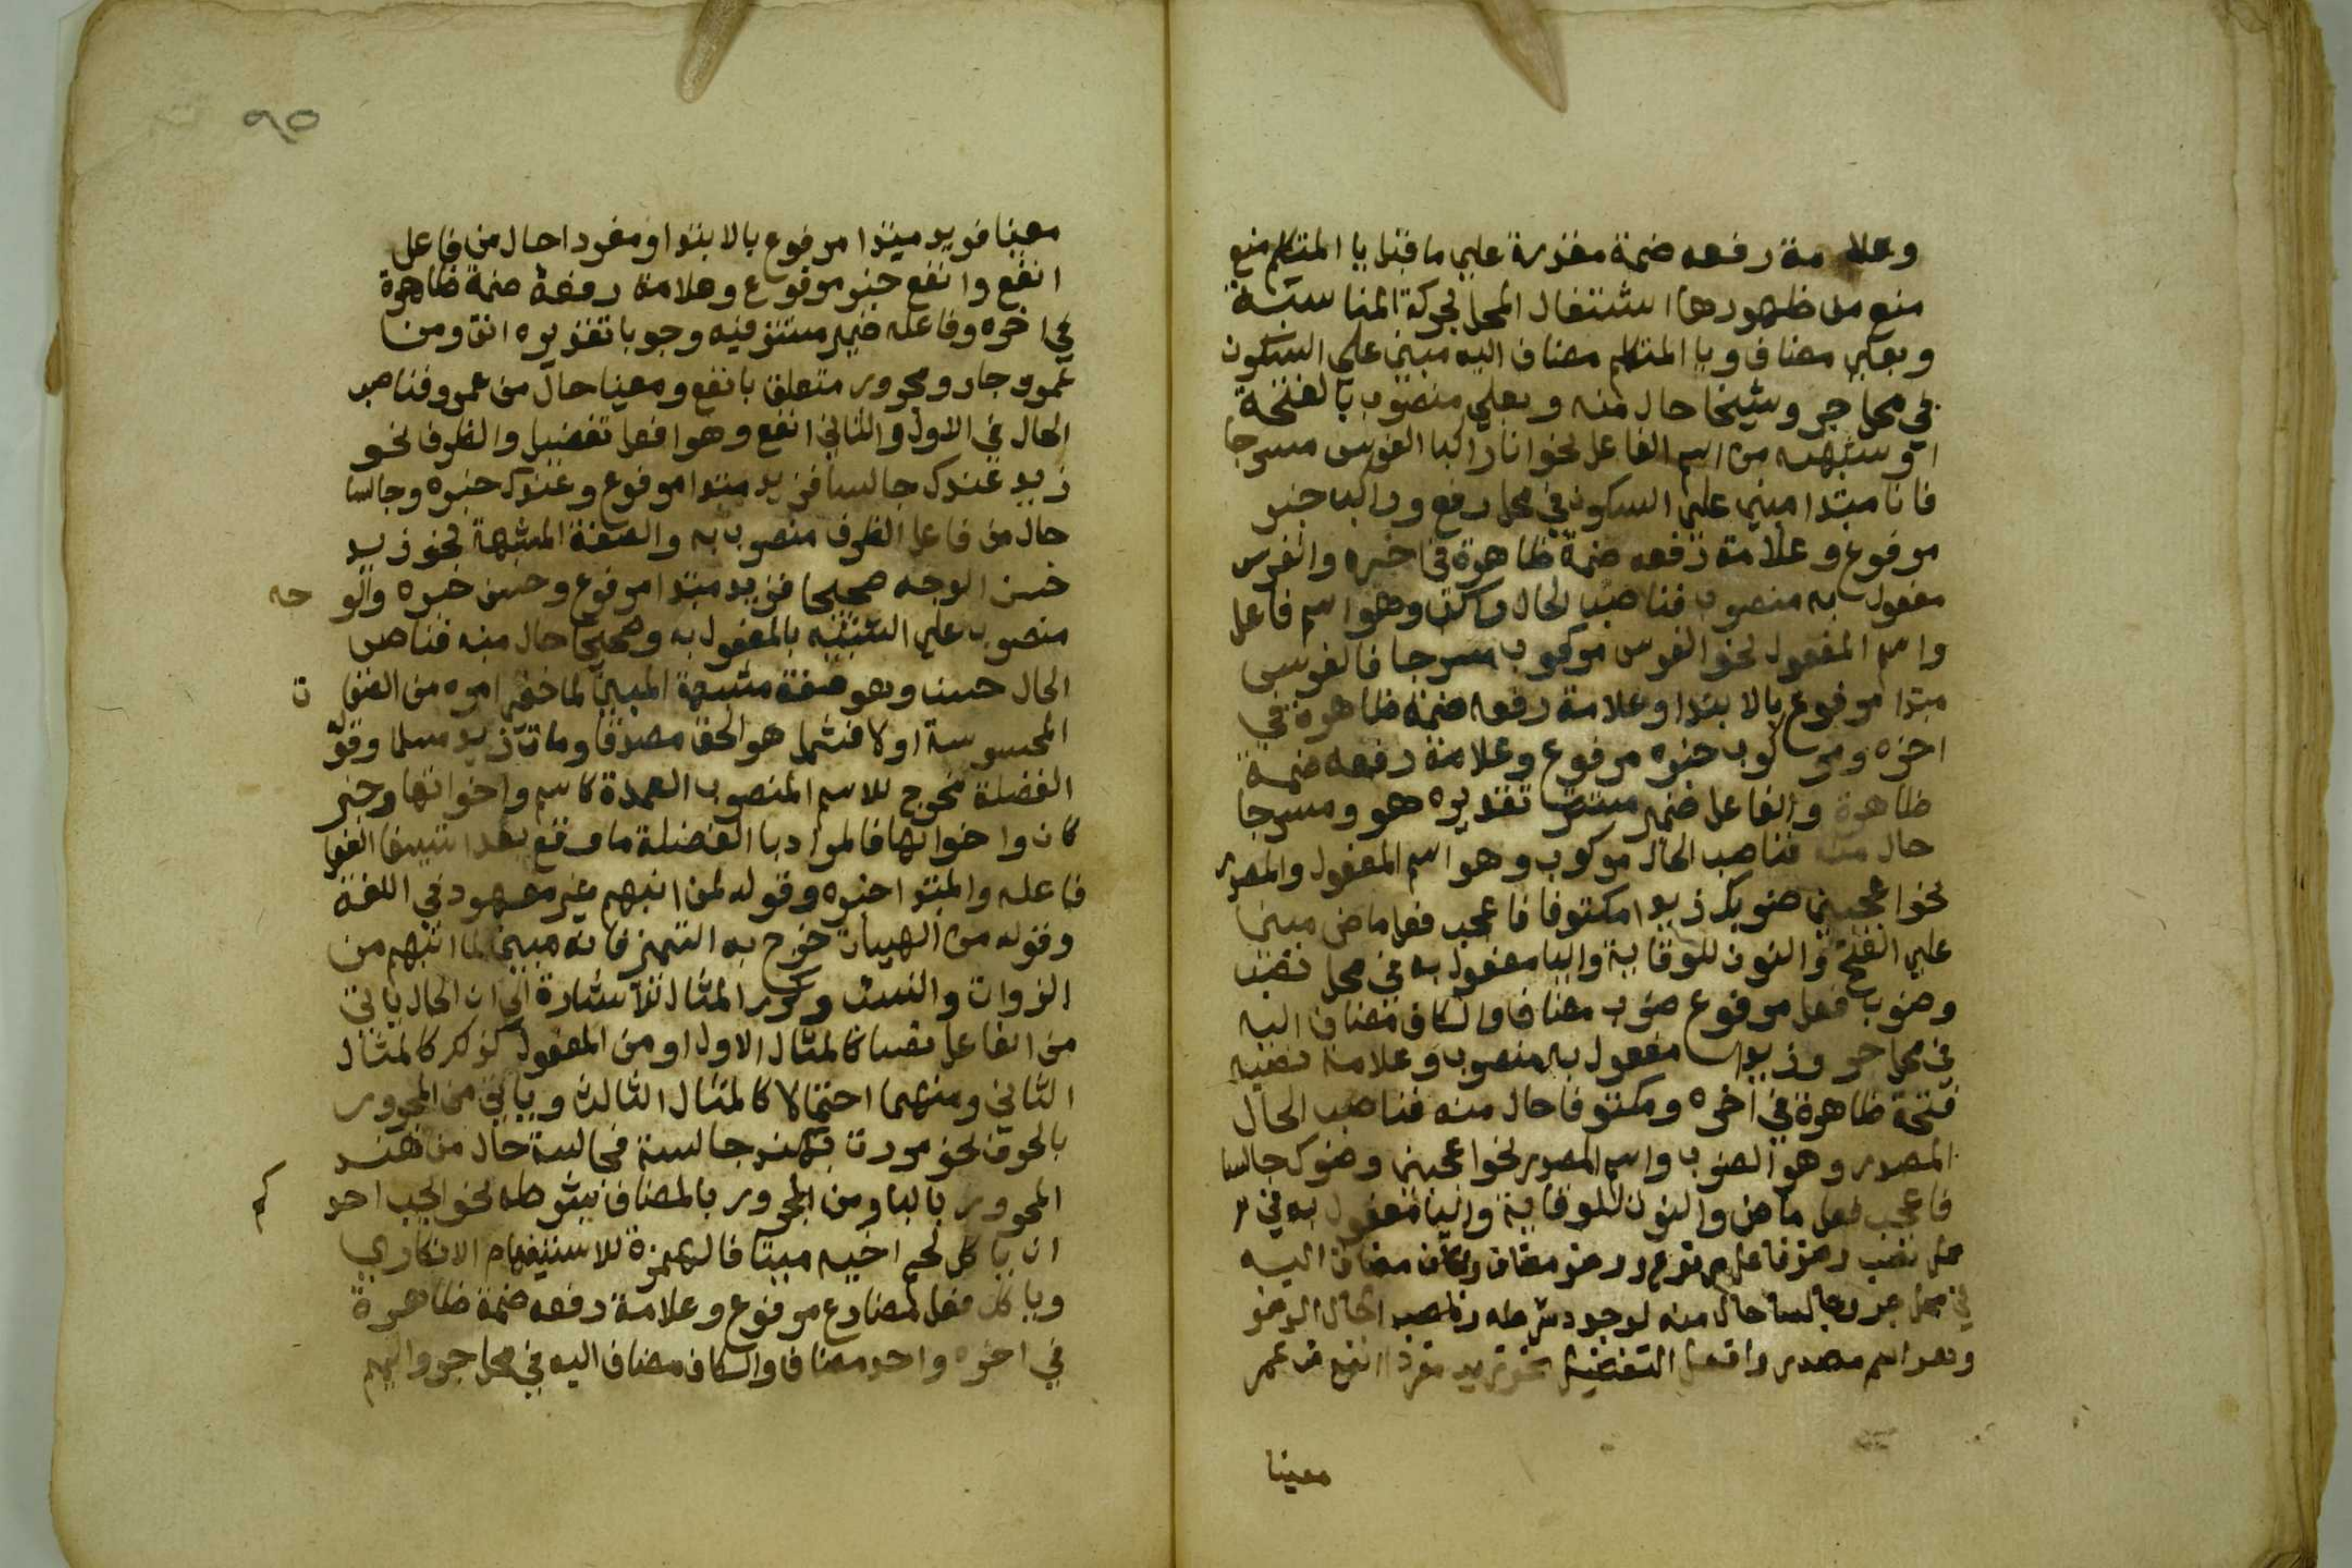 وعلامة رفعه ضمة مقدرة علي ما قبل يا المتكلم منع
منع من ظهورها اشتغال المحل بحركة المناسبة
وبعلي مضاف ويا المتكلم مضاف اليه مبني علي السكون
في محل جر وشيخا حال منه وبعلي منصوب بالفتحة
او شبهه من اسم الفاعل نحو انا راكبا الفرس مسرجا
فانا مبتدا مبني علي السكون في محل رفع وراكبا خبر
مرفوع وعلامة رفعه ضمة ظاهرة في اخره والفرس
مفعول به منصوب فناصب الحال راكب وهو اسم فاعل
واسم المفعول نحو الفرس مركوب مسرجا فالفرس
مبتدا مرفوع بالابتدا وعلامة رفعه ضمة ظاهرة في
اخره ومركوب خبره مرفوع وعلامة رفعه ضمة
ظاهرة والفاعل ضمير مستتر تقديره هو ومسرجا
حال منه فناصب الحال مركوب وهو اسم المفعول والمصدر
نحو اعجبني ضربك زيدا مكتوفا فاعجب فعل ماض مبني
علي الفتح والنون للوقاية واليا مفعول به في محل نصب
وضرب فعل مرفوع ضرب مضاف والكاف مضاف اليه
في محل جر وزيدا مفعول به منصوب وعلامة نصبه
فتحة ظاهرة في اخره ومكتوفا حال منه فناصب الحال
المصدر وهو الضرب واسم المصدر نحو اعجبني وضوك جالسا
فاعجب فعل ماض والنون للوقاية واليا مفعول به في
محل نصب وضو فاعل مرفوع ووضو مضاف والكاف مضاف اليه
في محل جر وجالسا حال منه لوجود شرطه وناصب الحال الوضو
وهو اسم مصدر وافعل التفضيل نحو زيد مفردا انفع من عمر
معينا
٩٥
معينا فزيد مبتدا مرفوع بالابتدا ومفردا حال من فاعل
انفع وانفع خبر مرفوع وعلامة رفعه ضمة ظاهرة
في اخره وفاعله ضمير مستتر فيه وجوبا تقديره انت ومن
عمرو جار ومجرور متعلق بانفع ومعينا حال من عمرو فناصب
الحال في الاول والثاني انفع وهو افعل تفضيل والظرف نحو
زيد عندك جالسا فزيد مبتدا مرفوع وعندك خبره وجالسا
حال من فاعل الظرف منصوب به والصفة المشبهة نحو زيد
حسن الوجه صحيحا فزيد مبتدا مرفوع وحسن خبره والو جه
منصوب علي التشبيه بالمفعول به وصحيحا حال منه فناصب
الحال حسن وهو صفة مشبهة المبين لما خفي امره من الصفا ت
المحسوسة او لا فشمل هو الحق مصدقا ومات زيد مسلما وقوله
الفضلة مخرج للاسم المنصوب العمدة كاسم واخواتها وخبر
كان واخواتها فالمراد با الفضلة ما وقع بعد استيفا الفعل
فاعله والمبتدا خبره وقوله لمن انبهم غير معهود في اللغة
وقوله من الهييات خرج به التميز فانه مبين لما انبهم من
الذوات والنسب وكرر المثال للاشارة الي ان الحال ياتي
من الفاعل نصا كالمثال الاول او من المفعول كذلك كالمثال
الثاني ومنهما احتمالا كالمثال الثالث وياتي من المجرور
بالحرف نحو مررت بهند جالسة فجالسة حال من هند
المجرور بالبا ومن المجرور بالمضاف بشرطه نحو ايحب احد كم
ان ياكل لحم اخيه ميتا فالهمزة للاستيفهام الانكاري
وياكل فعل مضارع مرفوع وعلامة رفعه ضمة ظاهرة
في اخره واحد مضاف والكاف مضاف اليه في محل جر والميم